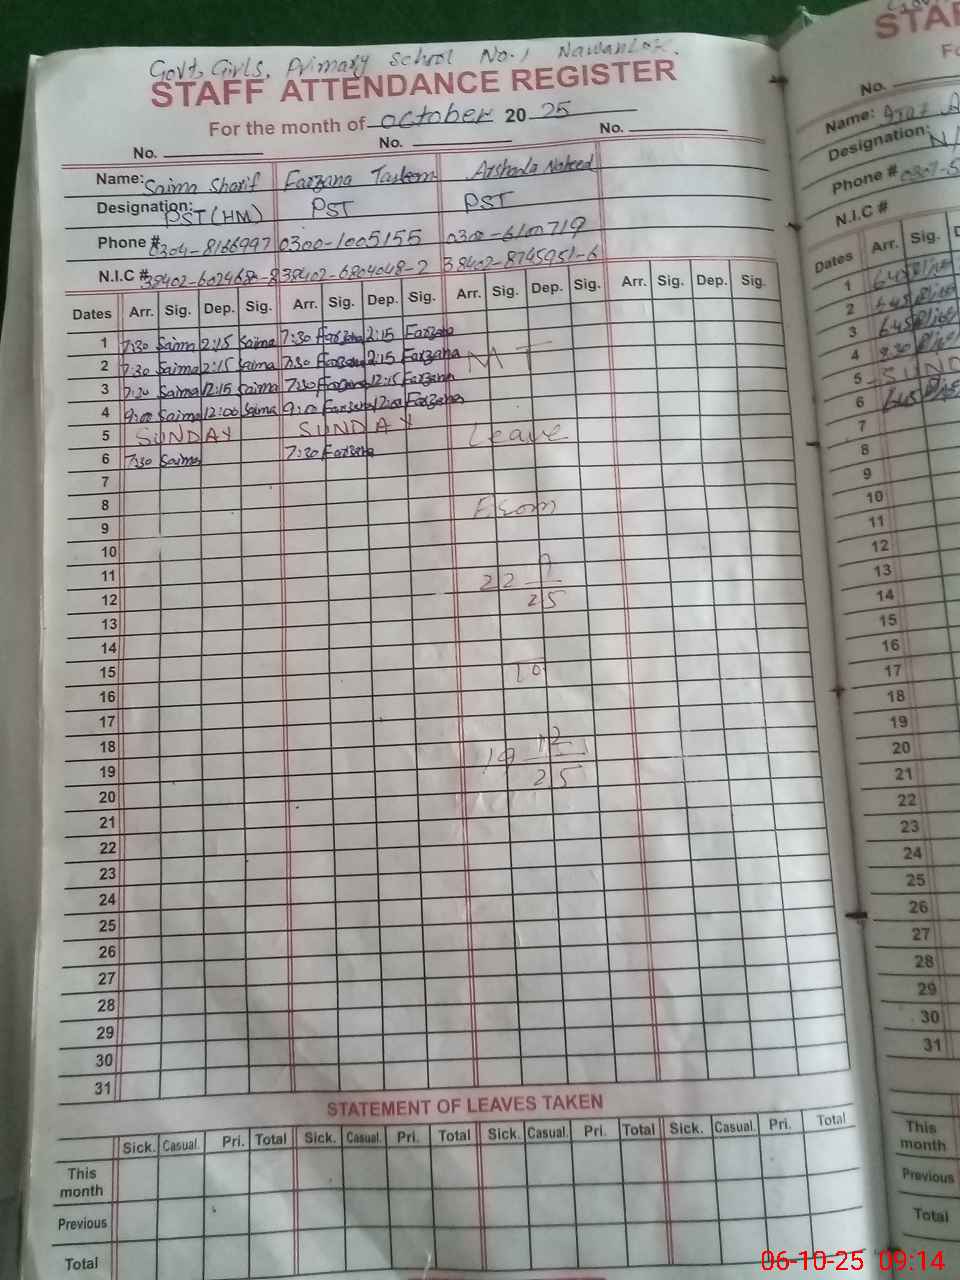 Govt, Girls, Primary School No.1 Nawanlok.
STAFF ATTENDANCE REGISTER
For the month of October 20 25
No. No. No.
Name: Saima Sharif Farzana Tasleem Arshala Naheed
Designation: PST (HM) PST PST
Phone # 0304-8166997 0300-1005155 0300-6100719
N.I.C # 38402-6024680-8 38402-6804048-2 38402-8745951-6
Dates Arr. Sig. Dep. Sig. Arr. Sig. Dep. Sig. Arr. Sig. Dep. Sig. Arr. Sig. Dep. Sig.
1 7:30 Saima 2:15 Saima 7:30 Farzana 2:15 Farzana
2 7:30 Saima 2:15 Saima 7:30 Farzana 2:15 Farzana MT
3 7:30 Saima 12:15 Saima 7:30 Farzana 12:15 Farzana
4 9:00 Saima 12:00 Saima 9:00 Farzana 12:00 Farzana
5 SUNDAY SUNDAY Leave
6 7:30 Saima 7:30 Farzana
7
8 From
9
10
11 22 9
12 25
13
14
15 To
16
17
18 19 12
19 25
20
21
22
23
24
25
26
27
28
29
30
31
STATEMENT OF LEAVES TAKEN
Sick. Casual. Pri. Total Sick. Casual. Pri. Total Sick. Casual. Pri. Total Sick. Casual. Pri. Total
This month
Previous
Total
STAF
No.
Name:
Designation:
Phone # 0307-5
N.I.C #
Dates Arr. Sig.
1 6:45
2 6:45
3 6:45
4 8:30
5 SUND
6 6:45
7
8
9
10
11
12
13
14
15
16
17
18
19
20
21
22
23
24
25
26
27
28
29
30
31
This month
Previous
Total
06-10-25 09:14